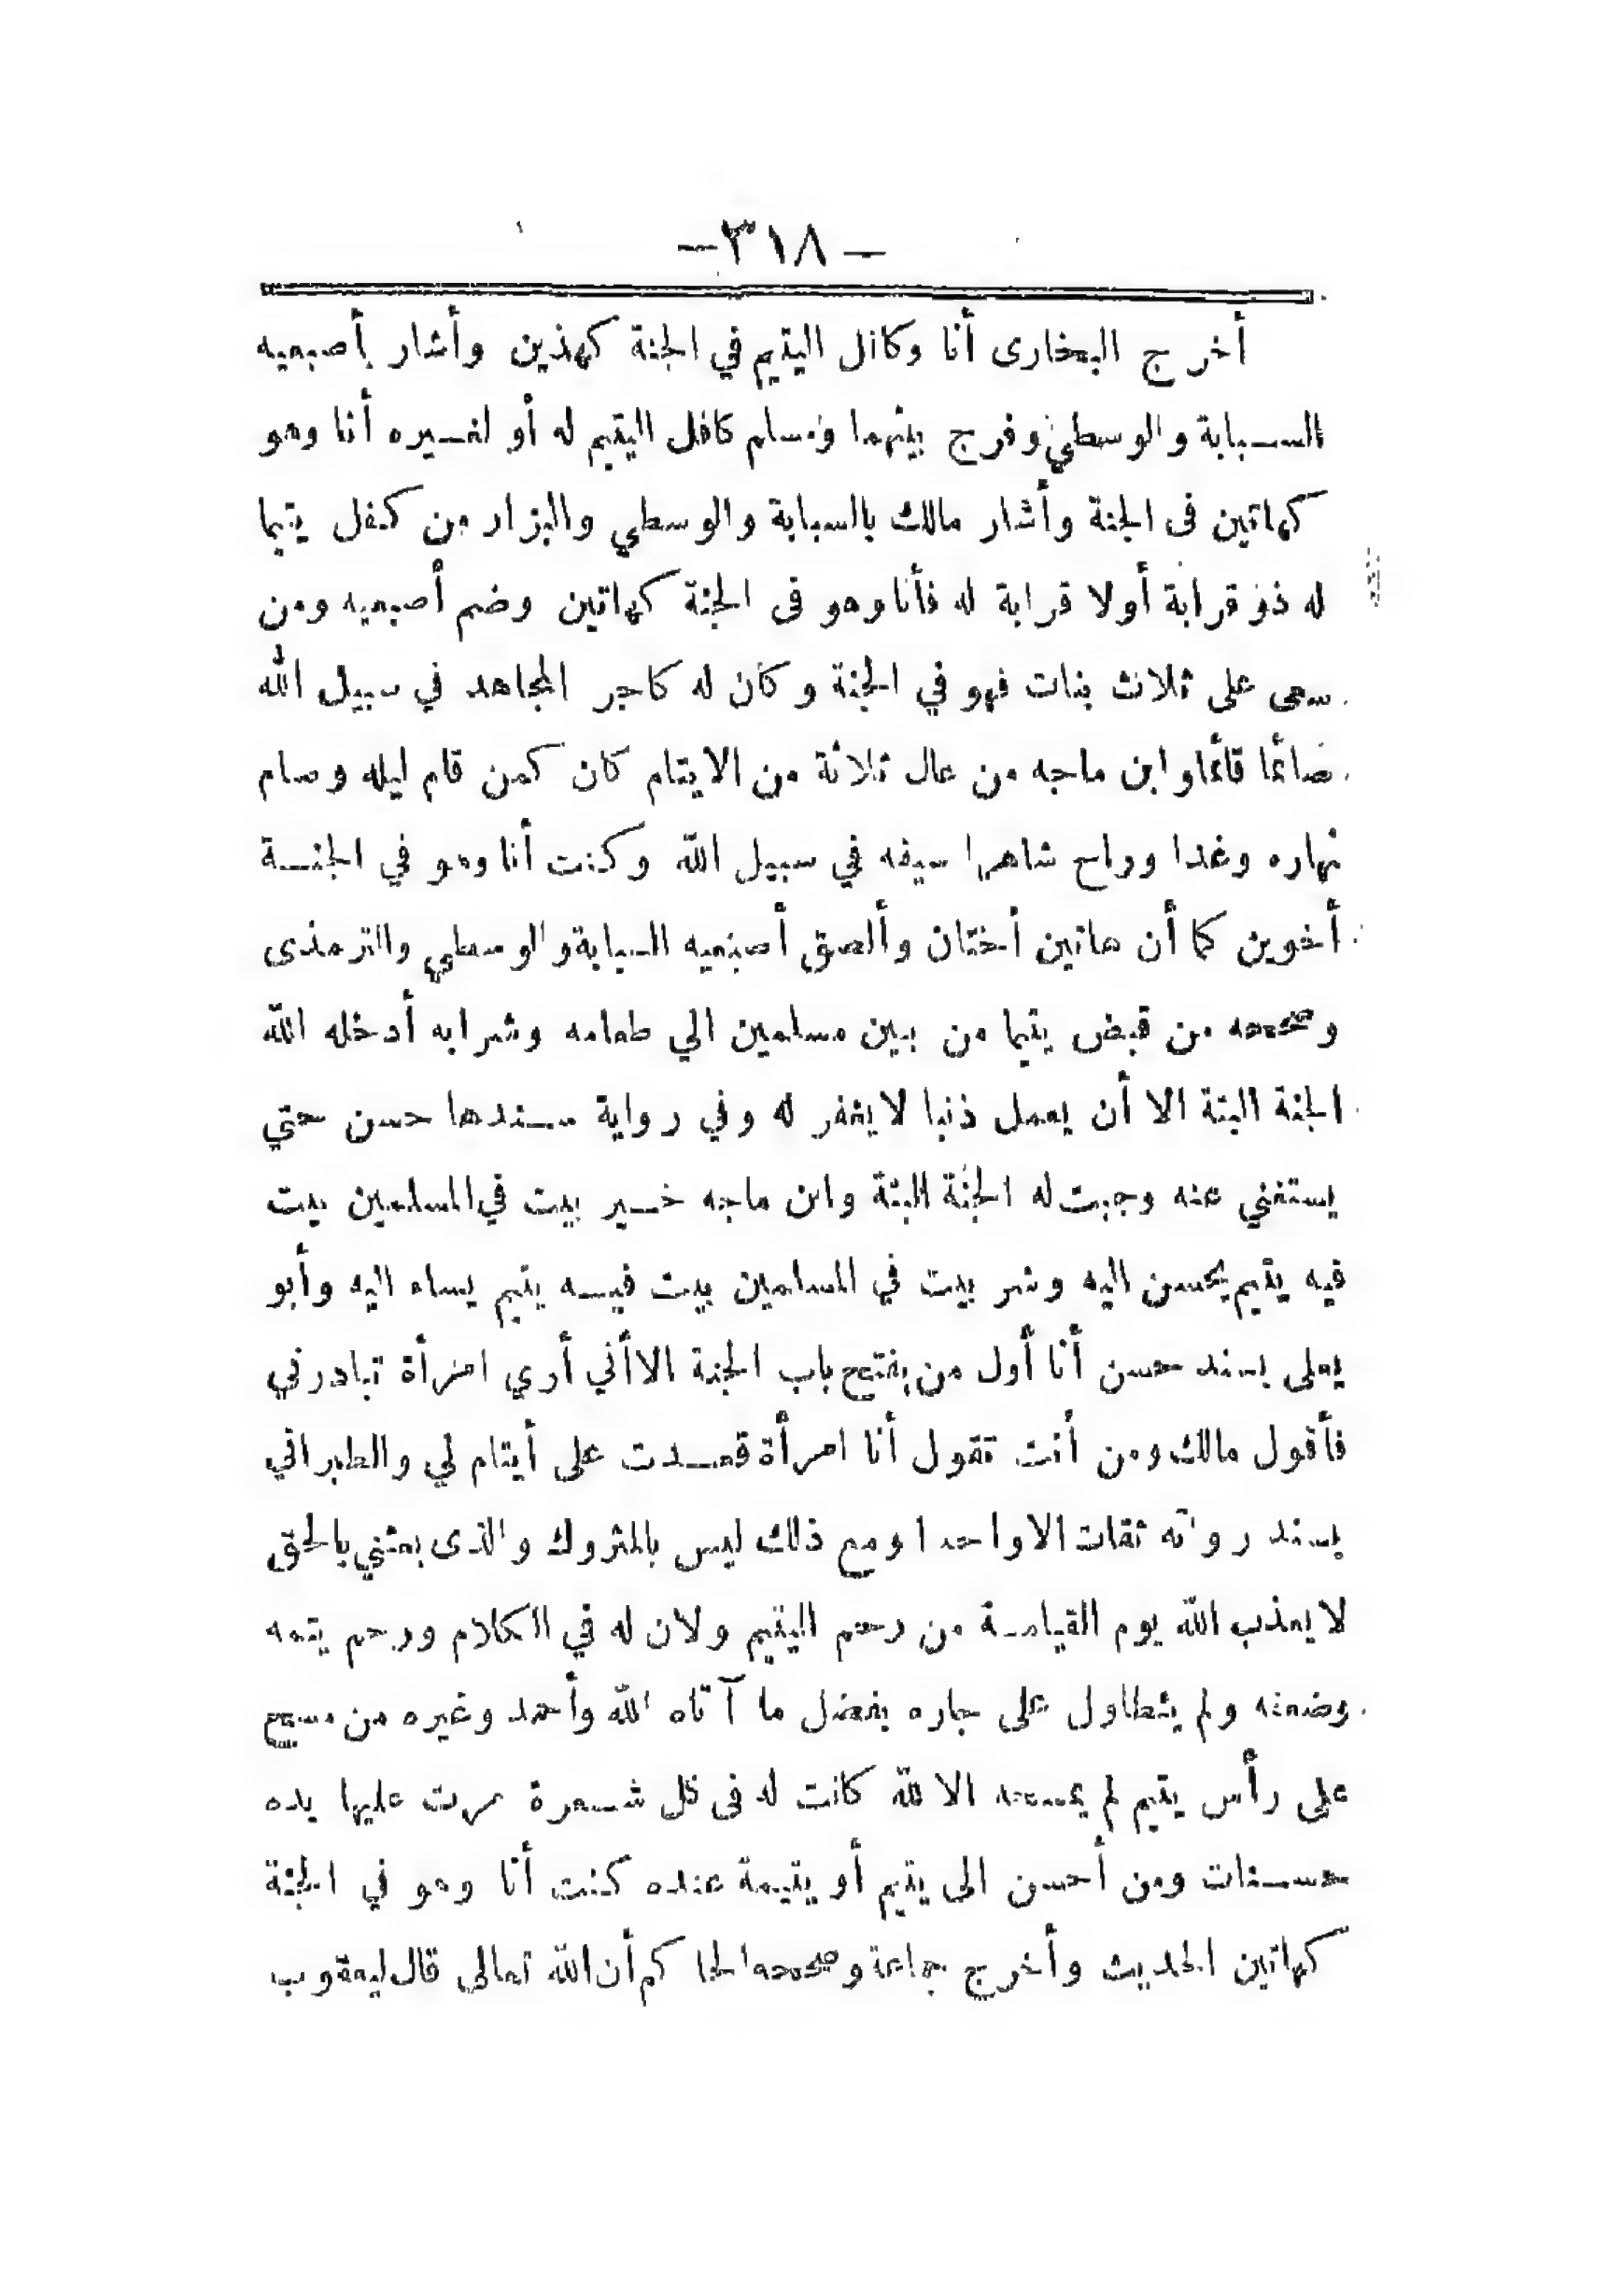 — ٣١٨ —
أخرج البخارى أنا وكافل اليتيم في الجنة كهذين وأشار بأصبعيه
السبابة والوسطي وفرج بينهما ومسلم كافل اليتيم له أو لغيره أنا وهو
كهاتين فى الجنة وأشار مالك بالسبابة والوسطي والبزار من كفل يتيما
له ذو قرابة أولا قرابة له فأنا وهو فى الجنة كهاتين وضم أصبعيه ومن
سعى على ثلاث بنات فهو في الجنة وكان له كاجر المجاهد في سبيل الله
صائما قائما وابن ماجه من عال ثلاثة من الايتام كان كمن قام ليله وصام
نهاره وغدا وراح شاهرا سيفه في سبيل الله وكنت أنا وهو في الجنة
أخوين كما أن هاتين أختان وألصق أصبعيه السبابة والوسطي والترمذى
وصححه من قبض يتيما من بين مسلمين الي طعامه وشرابه أدخله الله
الجنة البتة الا أن يعمل ذنبا لايغفر له وفي رواية سندها حسن حتي
يستغني عنه وجبت له الجنة البتة وابن ماجه خير بيت في المسلمين بيت
فيه يتيم يحسن اليه وشر بيت في المسلمين بيت فيه يتيم يساء اليه وأبو
يعلى بسند حسن أنا أول من يفتح باب الجنة الا أني أري امرأة تبادرني
فأقول مالك ومن أنت تقول أنا امرأة قعدت على أيتام لي والطبراني
بسند رواته ثقات الا واحدا ومع ذلك ليس بالمتروك والذى بعثني بالحق
لا يعذب الله يوم القيامة من رحم اليتيم ولان له في الكلام ورحم يتمه
وضعفه ولم يتطاول على جاره بفضل ما آتاه الله وأحمد وغيره من مسح
على رأس يتيم لم يمسحه الا لله كانت له فى كل شعرة مرت عليها يده
حسنات ومن أحسن الى يتيم أو يتيمة عنده كنت أنا وهو في الجنة
كهاتين الحديث وأخرج جماعة وصححه الحاكم أن الله تعالى قال ليعقوب